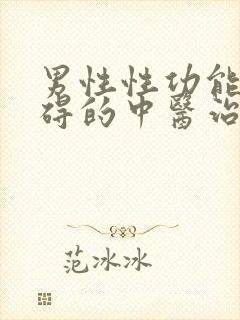 男性性功能
碍的中醫治
范冰冰